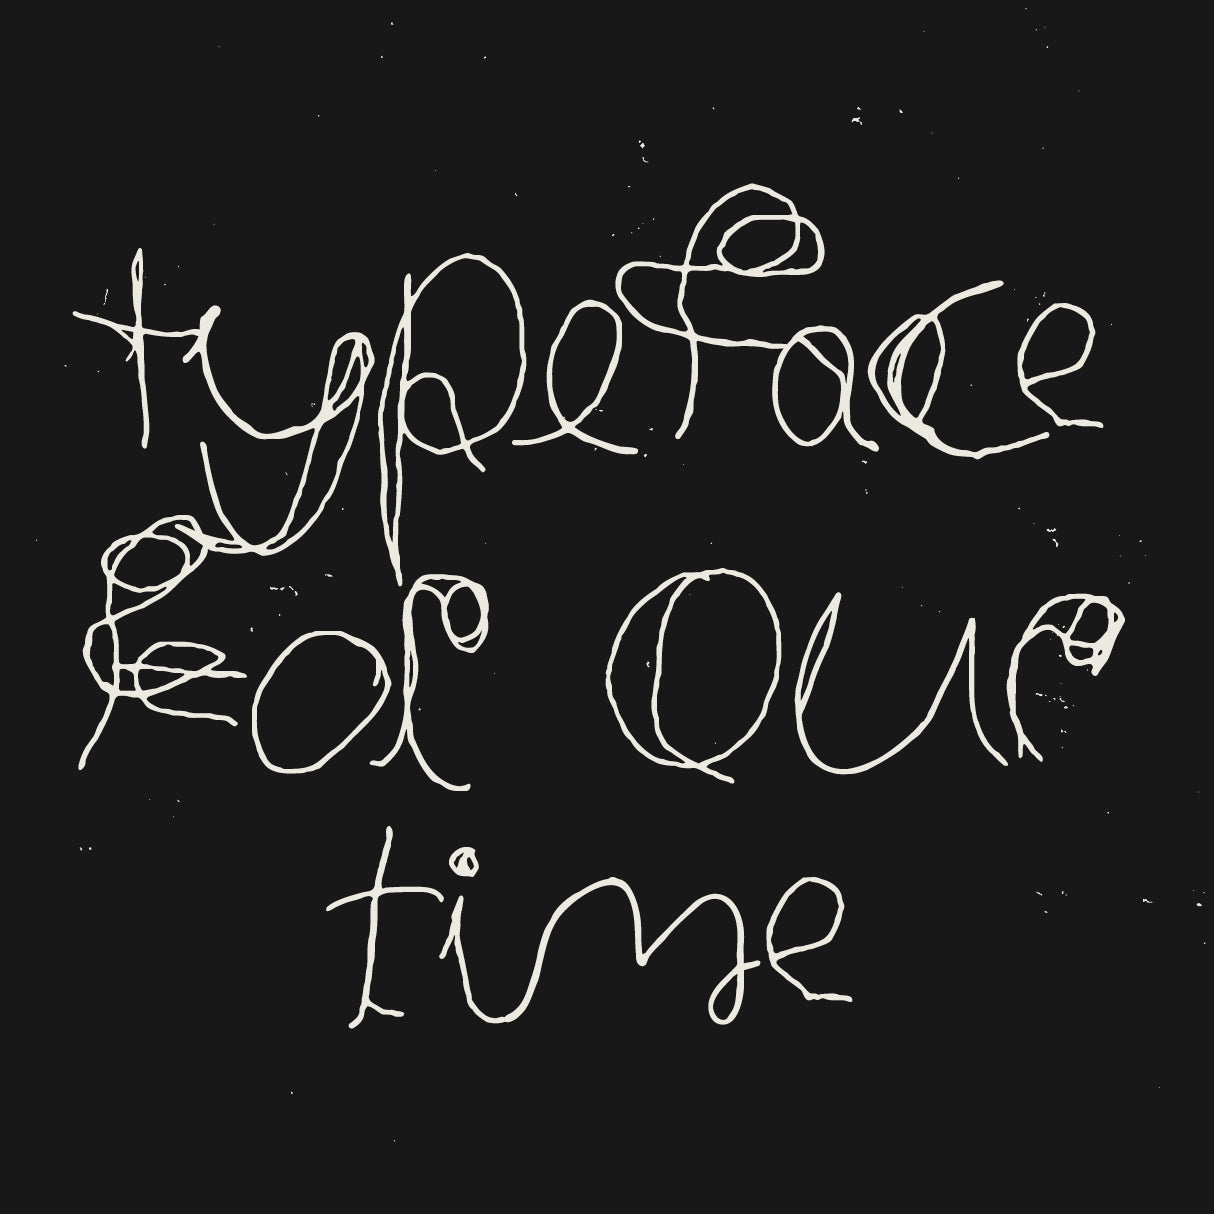 typeface
for our
time